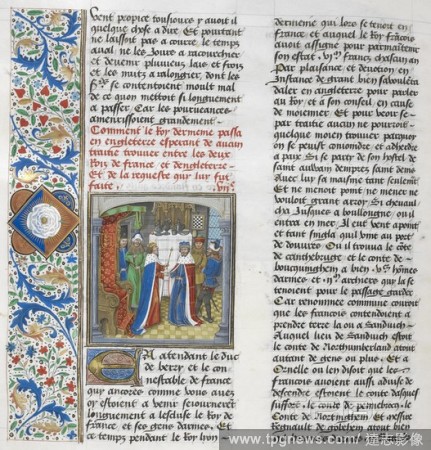 vent propice tousjours y avoit il
quelque chose a dire. Et pourtant
ne laissoit pas a courre le temps
aual ne les Jours a racourchier
et devenir pluvieux lais et frois
et les nuitz a ralongier, dont les
se contentoient moult mal
de ce quon mettoit si longuement
a passer. Car les pourveances
amenrissoient grandement
Comment le Roy dermenie passa
en engleterre esperant de aucun
traitie trouver entre les deux
Rois de france et dengleterre
Et de la requeste qui lui fut
faitte.
En attendant le duc
de berry et le con
nestable de france
qui ancores comme vous avez
oy estoient a venir sejournerent
longuement a lescluse le Roy de
france et ses gens darmes. Et
ce temps pendant le Roy lyon
dermenie qui lors se tenoit en
france et auquel le Roy francois
avoit assigne pour parmaintenir
son estat francz chascun an
Par plaisance et devotion en
Instance de grant bien saboulenda
daler en engleterre pour parler
au Roy et a son conseil, en cause
de moiennner. Et pour veoir se
par traitie aucun ne pourroit
quelque moien trouver par quoy
on se peust conioindre et adhedre
a paix. Si se party de son hostel de
saint aubain dempres saint denis
avec lui sa maisnie tant seulement
Et ne menoit point ne mener ne
vouloit grant arroy. Si chevaul
cha Jusques a boullongne ou il
entra en mer. Il eut vent a point
et tant singla quil vint au port
de douvres Ou il trouva le conte
de cantebruge et le conte de
boucquinghem a bien hommes
darmes et archiers qui la se
tenoient pour le passage garder
Car renommee commune couroit
que les francois contendoient a
prendre terre la ou a Sandwich
Auquel lieu de Sandwich estoit
le conte de Northumberland atout
autant de gens ou plus. Et a
Ornelle ou len disoit que les
francois avoient aussi advise de
descendre estoient le conte dasquesufforc
le conte de pennebroc, le
conte de Nortinghem. Et messire
Regnault de gobehem atout bien
www.tpgnews.com / 達志影像